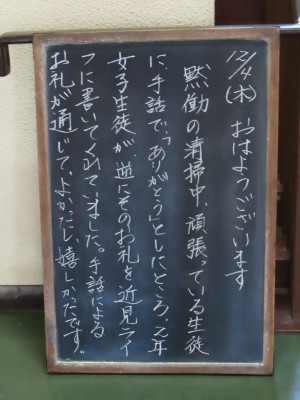 12/4(木) おはようございます
黙働の清掃中、頑張っている生徒
に、手話で、「ありがとう」としたところ、2年
女子生徒が、逆にそのお礼を近見ライ
フに書いてくれていました。手話による
お礼が通じて、よかったし嬉しかったです。